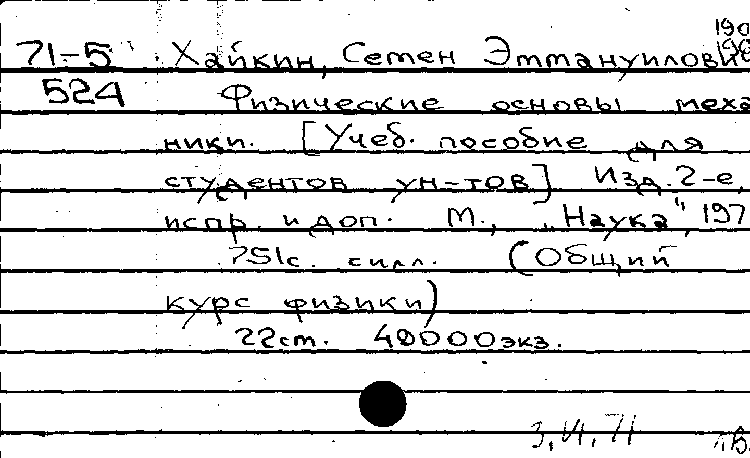 190
71-5 Хайкин, Семен Эммануилович
524 Физические основы меха
ники. [Учеб. пособие для
студентов ун-тов] Изд. 2-е,
испр. и доп. М., „Наука", 197
751с. силл. (Общий
курс физики)
22см. 40000экз.
3.VI.71